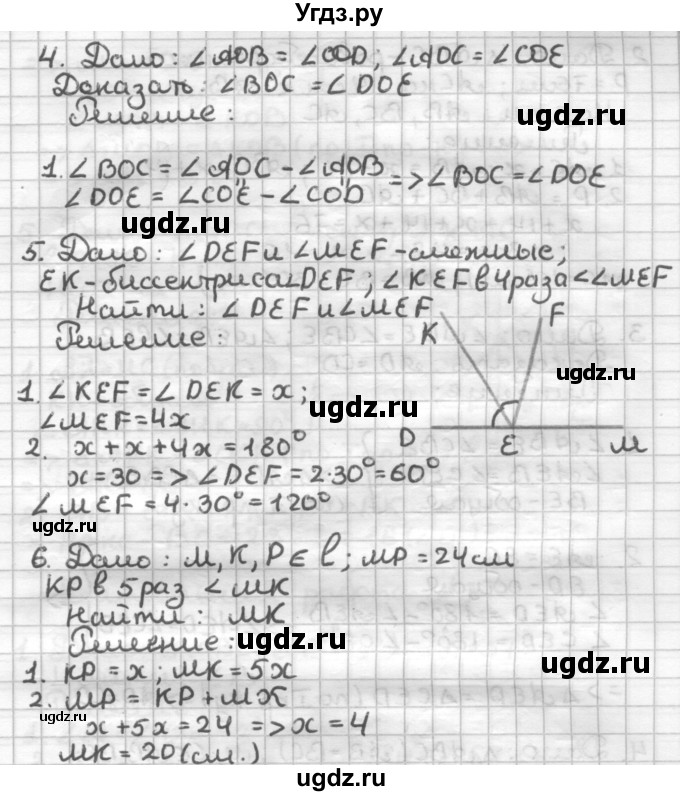 Угдз.ру
4. Дано: ∠AOB = ∠COD; ∠AOC = ∠COE
Доказать: ∠BOC = ∠DOE
Решение:
ugdz.ru
1. ∠BOC = ∠AOC - ∠AOB
∠DOE = ∠COE - ∠COD => ∠BOC = ∠DOE
ugdz.ru
5. Дано: ∠DEF и ∠MEF - смежные;
EK - биссектриса ∠DEF; ∠KEF в 4 раза < ∠MEF
Найти: ∠DEF и ∠MEF
Решение:
ugdz.ru
K
F
ugdz.ru
1. ∠KEF = ∠DEK = x;
ugdz.ru
∠MEF = 4x
D
E
M
2. x + x + 4x = 180°
x = 30 => ∠DEF = 2·30° = 60°
∠MEF = 4·30° = 120°
ugdz.ru
6. Дано: M, K, P ∈ l; MP = 24 см
KP в 5 раз < MK
Найти: MK
Решение:
ugdz.ru
ugdz.ru
1. KP = x; MK = 5x
2. MP = KP + MK
ugdz.ru
x + 5x = 24 => x = 4
MK = 20 (см.)
ugdz.ru
ugdz.ru
ugdz.ru